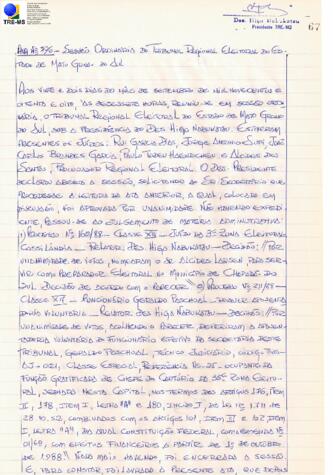 TRE-MS
Des. Higa Nabukatsu
Presidente TRE-MS
67
ATA Nº 396 - Sessão Ordinária do Tribunal Regional Eleitoral do Es-
tado de Mato Grosso do Sul
Aos vinte e dois dias do mês de setembro de mil novecentos e
oitenta e oito, às dezessete horas, reuniu-se em sessão ordi-
nária, o Tribunal Regional Eleitoral do Estado de Mato Grosso
do Sul, sob a presidência do Des Higa Nabukatsu. Estiveram
presentes os Juízes: Rui Garcia Dias,
Carlos Brandes Garcia, e Alcides dos
Santos, Procurador Regional Eleitoral. O Des. Presidente
declarou aberta a sessão, solicitando ao Sr. Secretário que
procedesse a leitura da ata anterior, a qual, colocada em
discussão, foi aprovada por unanimidade. Não havendo expedi-
ente, passou-se ao julgamento de matéria administrativa:
1) Processo Nº 160/88 - Classe XII - Juízo da 3ª Zona Eleitoral
Cassilândia - Relator: Des Higa Nabukatsu - Decisão: "Por
unanimidade de votos, nomearam o Sr. Alcides Larsen para ser-
vir como Preparador Eleitoral no Município de Chapadão do
Sul. Decisão de acordo com o parecer." 2) Processo Nº 211/88 -
Classe XII - Funcionário Geraldo Paschoal - requer aposenta-
doria voluntária - Relator: Des Higa Nabukatsu - Decisão: "Por
unanimidade de votos, acolhendo o parecer, deferiram a aposen-
tadoria voluntária do funcionário efetivo da secretaria deste
Tribunal, Geraldo Paschoal, Técnico Judiciário, código TRE-
AJ-021, Classe Especial, Referência NS-25, ocupante da
função gratificada de Chefe do Cartório da 35ª Zona Eleitoral,
sediada nesta Capital, nos termos dos artigos 176, item
II, 178, item I, letra "A" e 180, inciso I, da Lei nº 1.711 de
28.10.52, combinados com os artigos 101, item III e 102 item
I, letra "A", da atual Constituição Federal,
com efeitos financeiros a partir de 1º de outubro
de 1988". Nada mais havendo, foi encerrada a sessão.
E, para constar, foi lavrada a presente ata, que depois